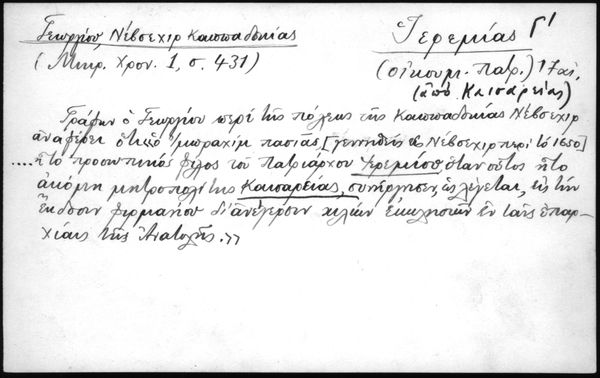 Γεωργίου, Νέβσεχιρ Καππαδοκίας
(Μικρ. Χρον. 1, σ. 431)
Ἱερεμίας Γ'
(οἰκουμ. πατρ.) 17
(ἀπό Καισαρείας)
Γράφων ὁ Γεωργίου περί τῆς πόλεως τῆς Καππαδοκίας Νέβσεχιρ
ἀναφέρει ὅτι ὁ Ἰμπραχίμ πασᾶς [γεννηθείς ἐν Νέβσεχιρ περί τό 1650]
....ἦτο προσωπικός φίλος τοῦ Πατριάρχου Ἱερεμίου, ὅταν οὗτος ἦτο
ἀκόμη μητροπολίτης Καισαρείας, συνήργησεν, ὡς λέγεται, εἰς τήν
ἔκδοσιν φιρμανίου δι' ἀνέγερσιν χιλίων ἐκκλησιῶν ἐν ταῖς ἐπαρ-
χίαις τῆς Ἀνατολῆς.»